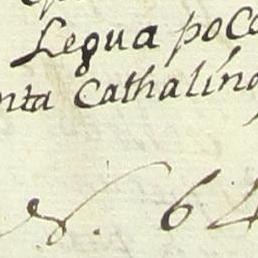 Legua poco
nta Cathalina
N. 64